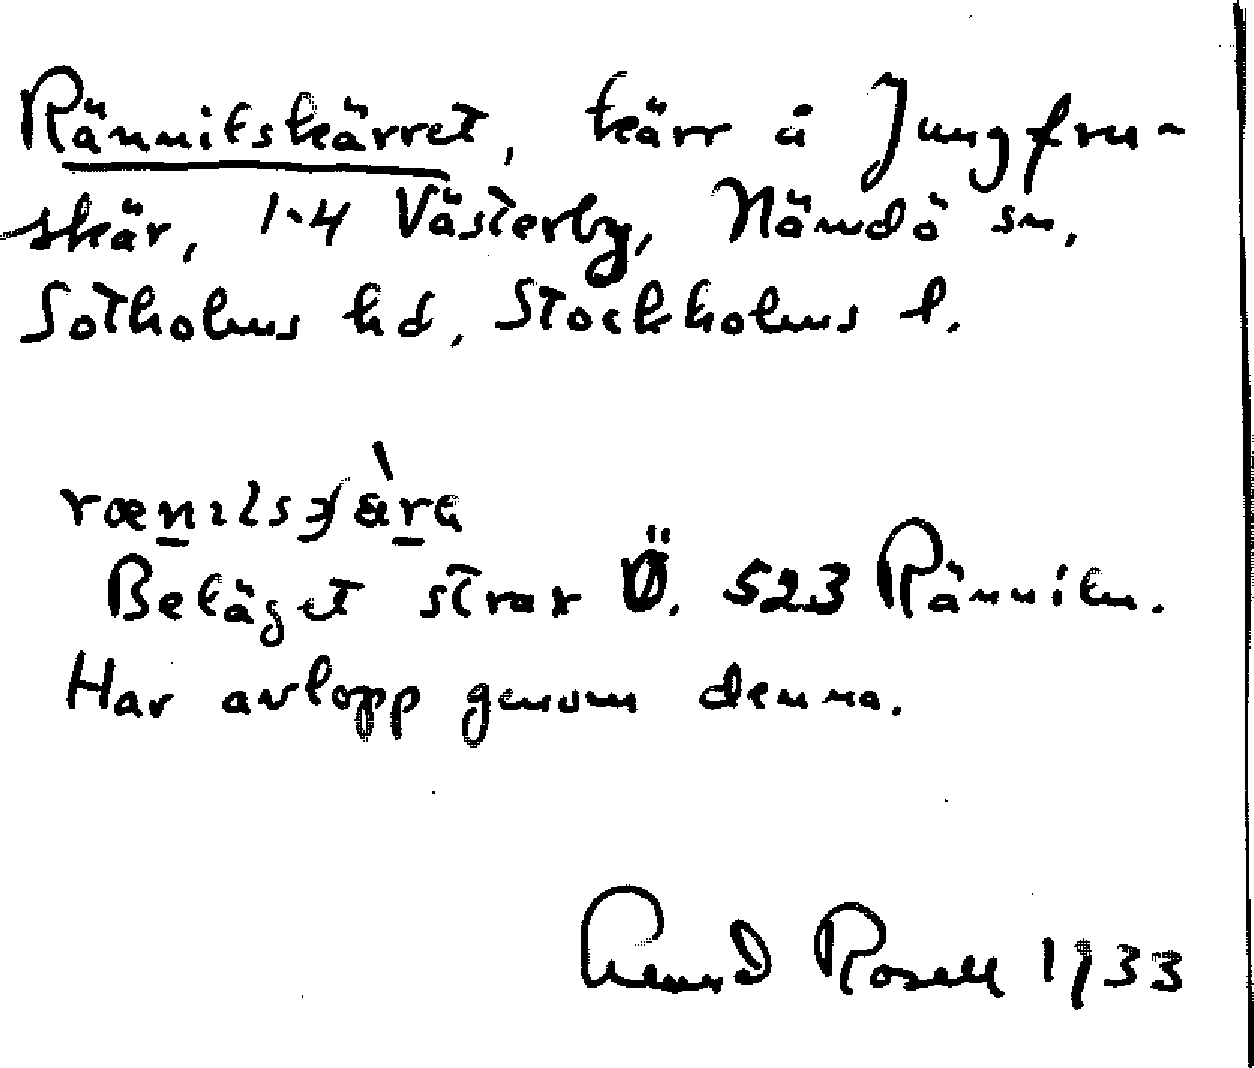 Rännilskärret, kärr å Jungfru-
skär, 1-4 Västerby, Nämdö sn,
Sotholms hd, Stockholms l.
Beläget strax Ö. 523 Ränniln.
Har avlopp genom denna.
Rosell 1933